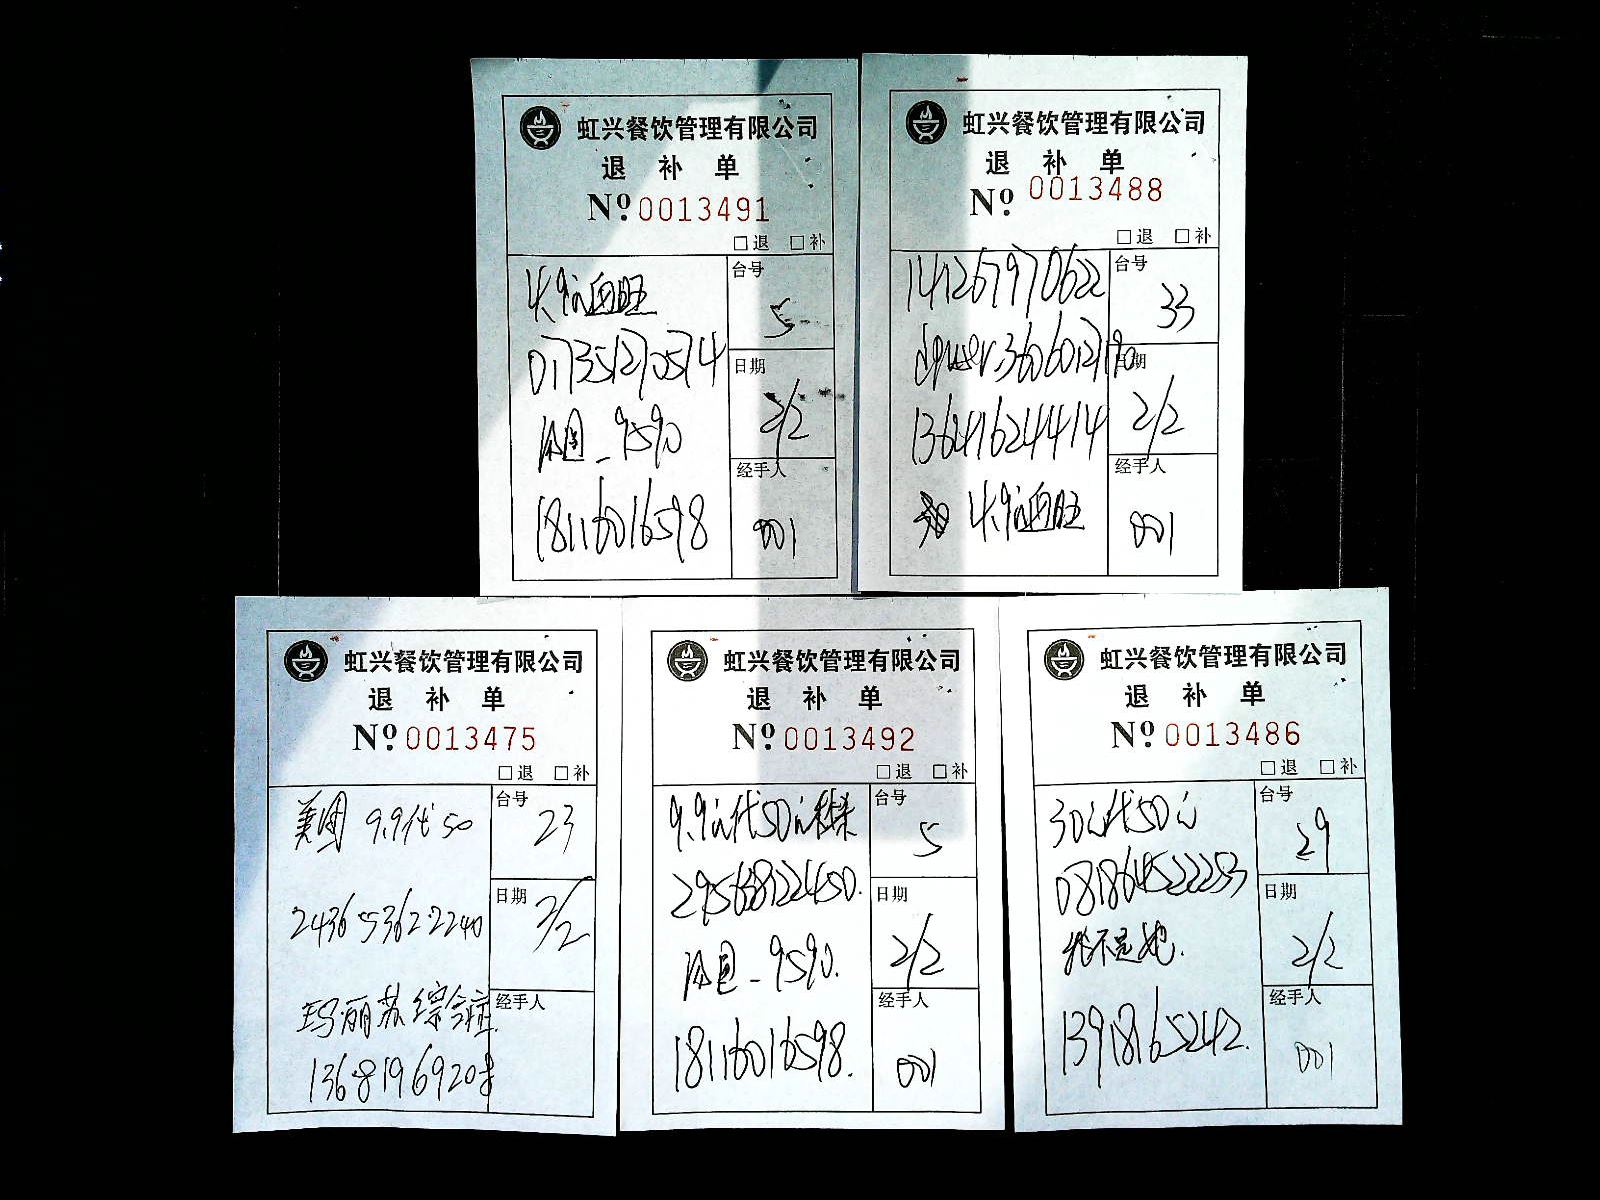 虹兴餐饮管理有限公司
退 补 单
Nº 0013491
□退 □补
台号
5
4.9元血旺
017351270574
日期
2/2
冰_9590
经手人
18116016598
001
虹兴餐饮管理有限公司
退 补 单
Nº 0013488
□退 □补
141267970622
台号
33
dpuser.36060127190
日期
2/2
13641624414
经手人
4.9元血旺
001
虹兴餐饮管理有限公司
退 补 单
Nº 0013475
□退 □补
台号
美团 9.9代50
23
日期
2436 5362 2240
2/2
玛丽苏综合症
经手人
1368196920
虹兴餐饮管理有限公司
退 补 单
Nº 0013492
□退 □补
台号
9.9元代50元
5
295688122450.
日期
2/2
_9590.
经手人
18116016598.
001
虹兴餐饮管理有限公司
退 补 单
Nº 0013486
□退 □补
台号
30元代50元
29
081864522253
日期
我不是她.
2/2
经手人
13918165242.
001